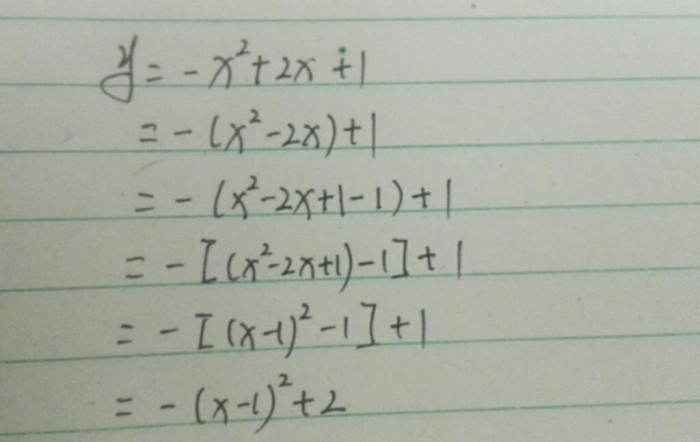 y = -x²+2x+1
= -(x²-2x)+1
= -(x²-2x+1-1)+1
= -[(x²-2x+1)-1]+1
= -[(x-1)²-1]+1
= -(x-1)²+2